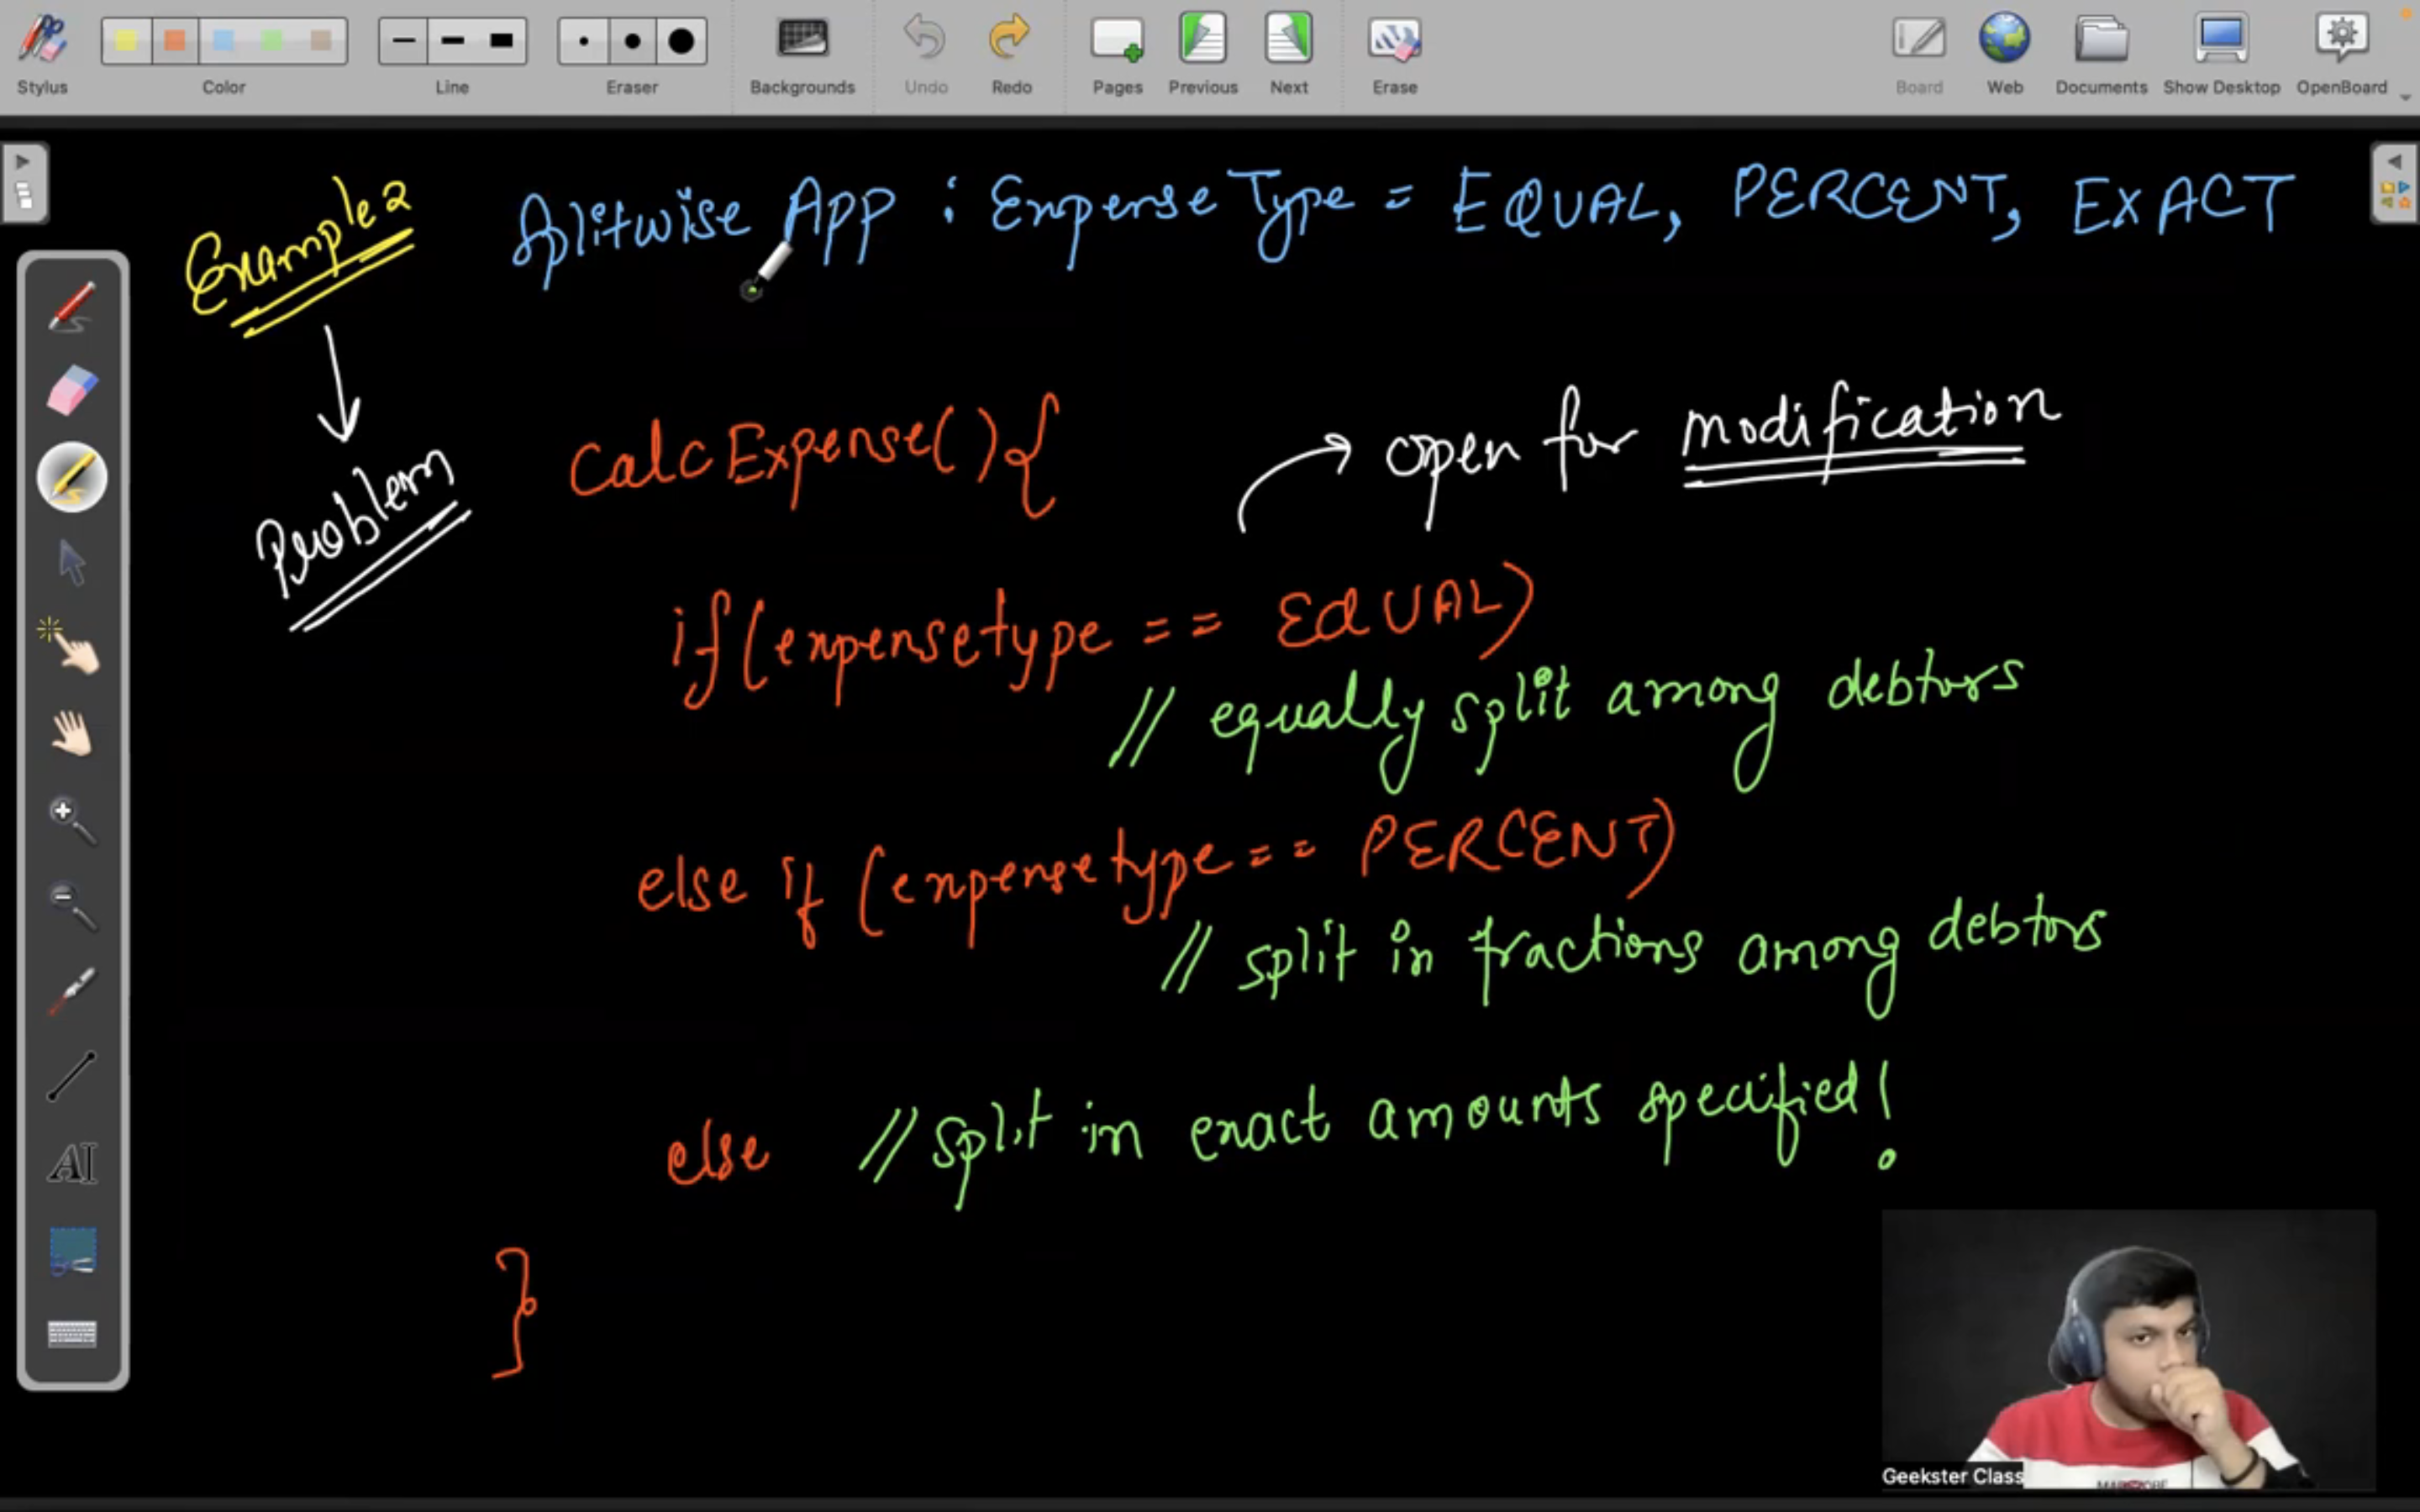 Stylus
Color
Line
Eraser
Backgrounds
Undo
Redo
Pages
Previous
Next
Erase
Board
Web
Documents
Show Desktop
OpenBoard
Example 2
Splitwise App : ExpenseType = EQUAL, PERCENT, EXACT
Problem
CalcExpense(){
→ open for modification
if(expensetype == EQUAL)
// equally split among debtors
else if (expensetype == PERCENT)
// split in fractions among debtors
else // split in exact amounts specified!
}
AI
Geekster Class